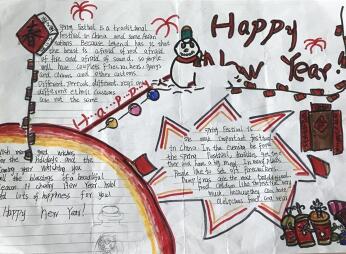 Spring Festival is a traditional
festival in China and some Asian
nations. Because legend has it that
the beast is afraid of red afraid
of fire and afraid of sound, so people
will have couplets firecrackers gongs
and drums and other customs.
Different periods different regions and
different ethnic customs
are not the same
春
H·a·p·p·y
Happy
New Year!
Spring Festival is
the most important festival
in China. In the evening before
the Spring Festival, families get to
and have a big meal.
People like to set off firecrackers.
Dumplings are the most traditional
food. Children like
much, because they can have
delicious food and wear
With many good wishes
for the holidays and the
coming year. Wishing you
all the blessings of a beautiful
season. A cheery New Year hold
lots of happiness for you!
Happy New Year!